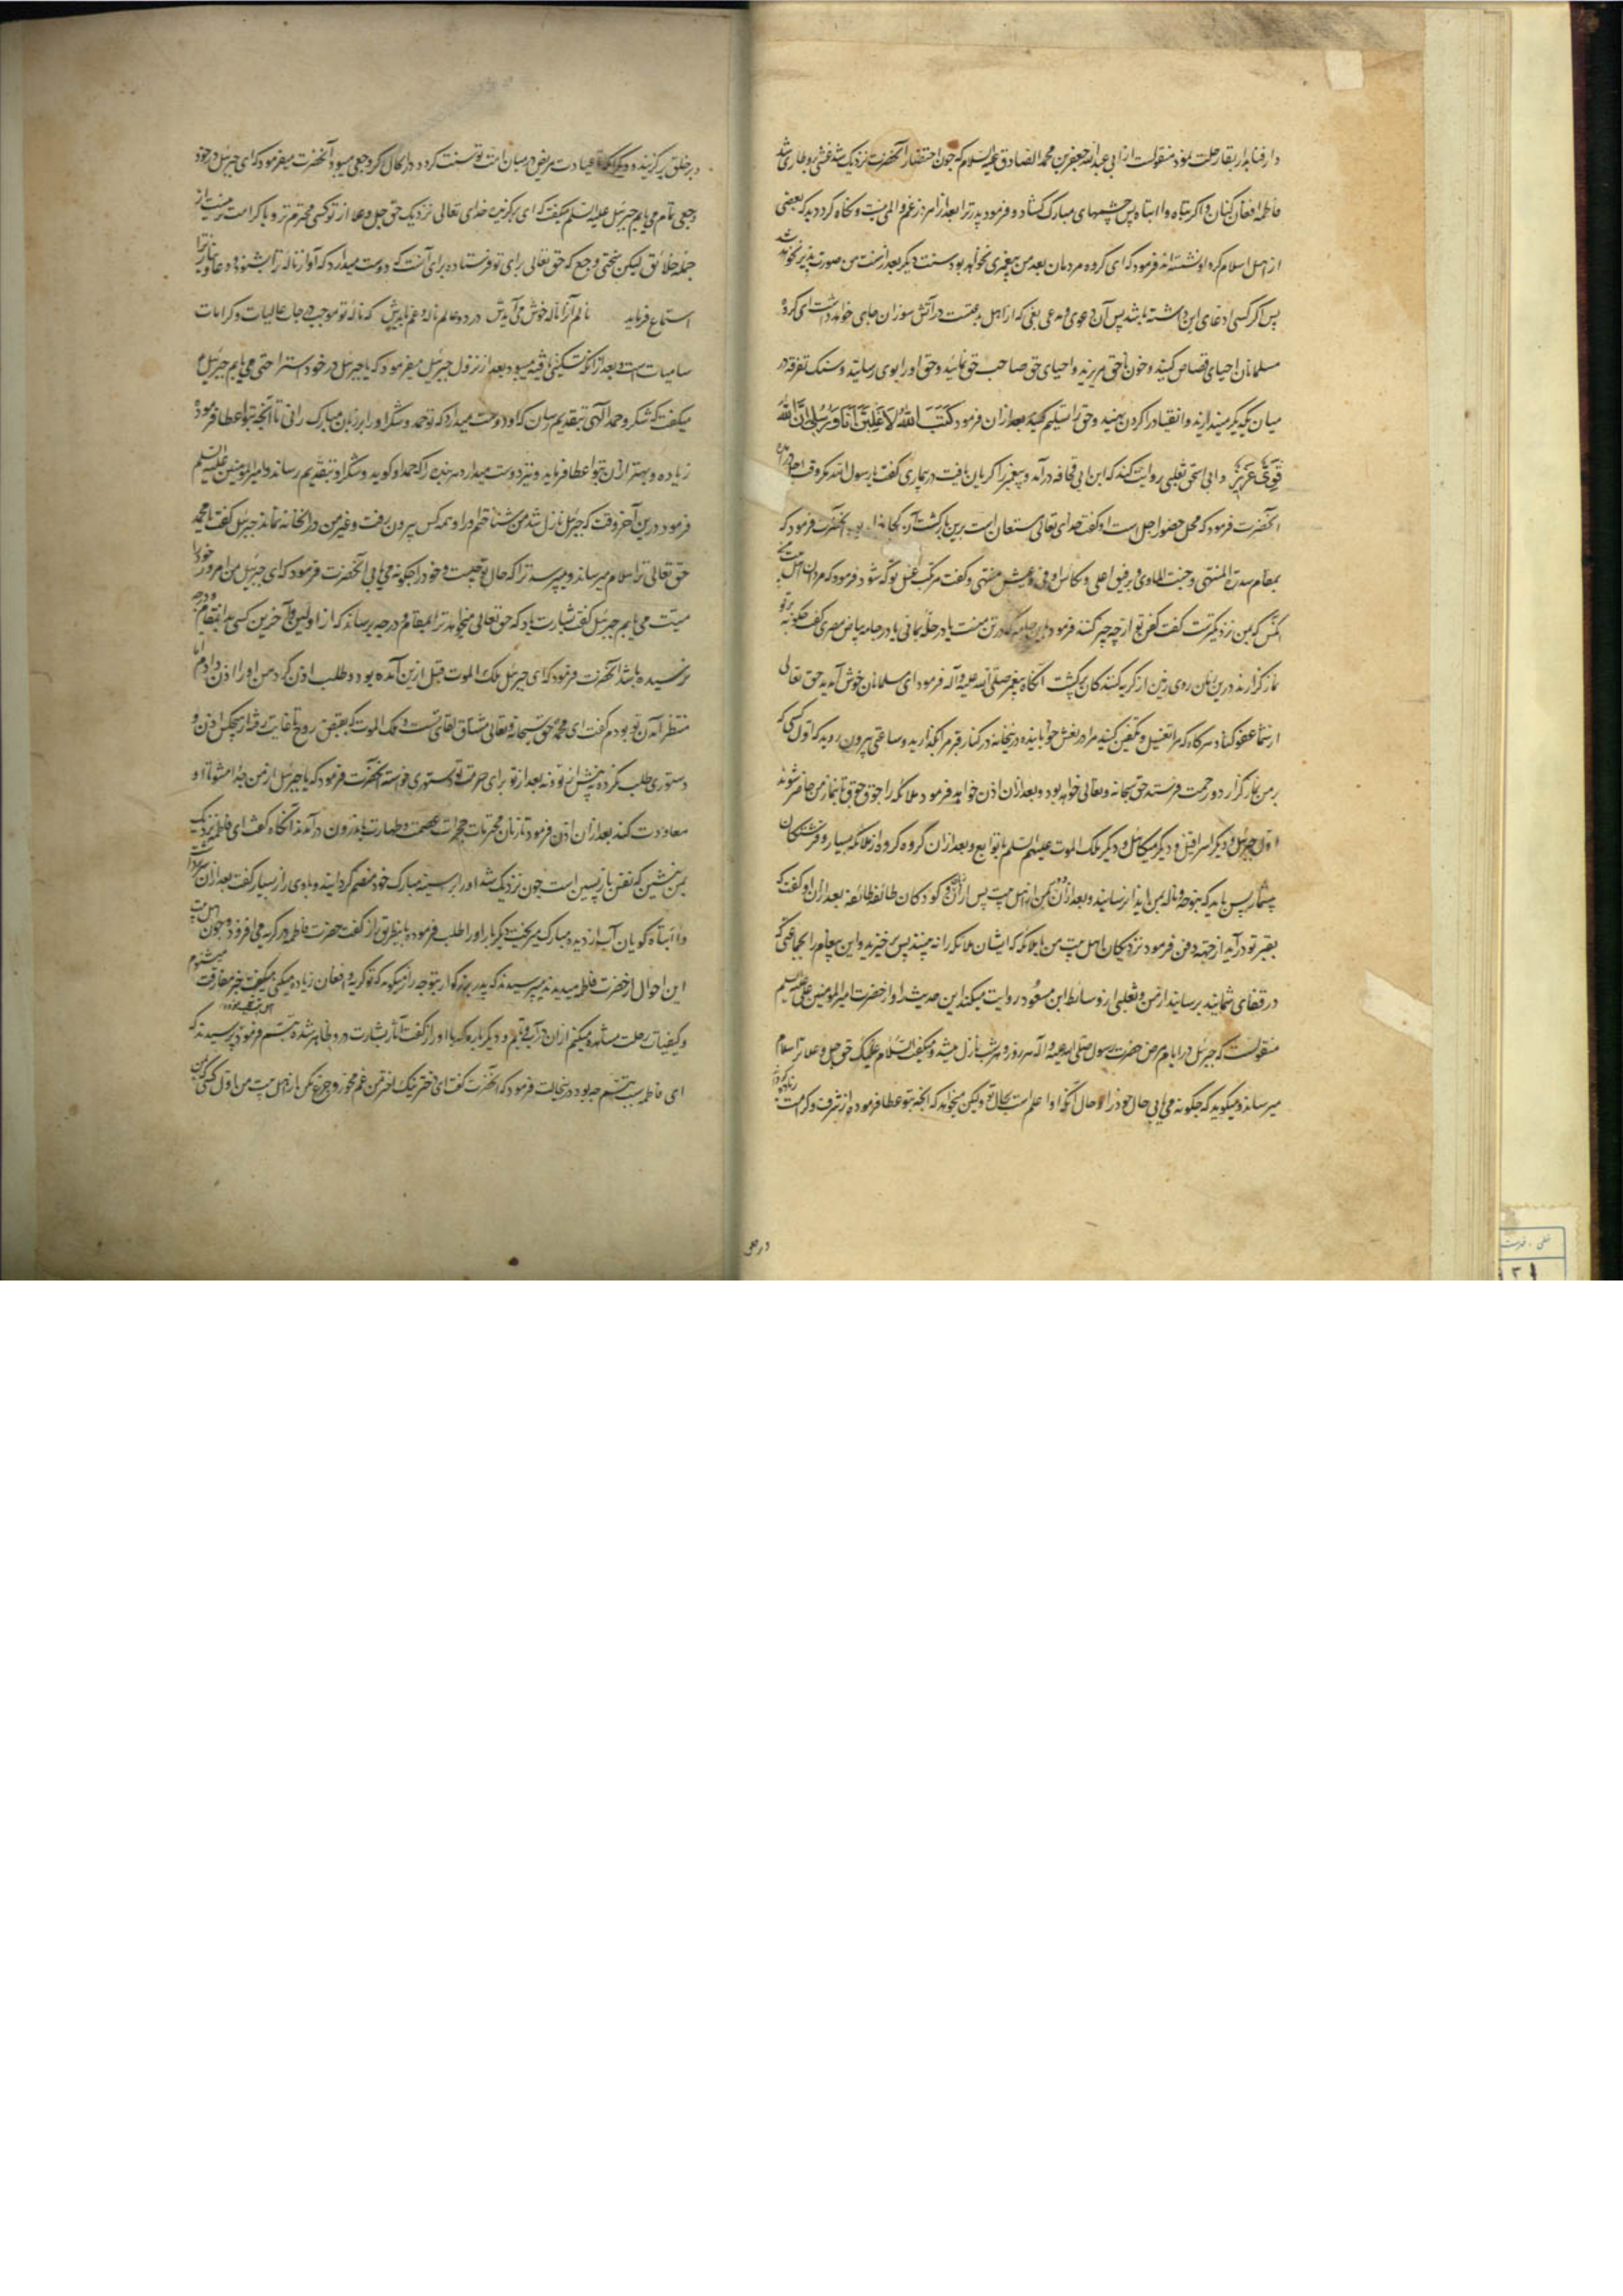 دار فنا بدار بقا رحلت نمود منقولست از ابی عبدالله جعفر بن محمد الصادق علیه السلام که چون احتضار آنحضرت نزدیک شد غشی برو طاری شد
فاطمه افغان کنان واکربتاه وا ابتاه پس چشمهای مبارک گشاد و فرمود پدر ترا بعد از امروز غم و المی نیست و نگاه کرد دید که بعضی
از اهل اسلام گرد او نشسته اند فرمود که ای گروه مردمان بعد من پیغمبری نخواهد بود و سنت دیگر بعد از سنت من صورت پذیر نخواهد شد
پس اگر کسی ادعای این داشته باشد پس آن دعوی و مدعی بغی که از اهل بدعتست در آتش سوزان جای خواهد داشت ای گروه
مسلمانان احیای قصاص کنید و خون ناحق مریزید و احیای حق صاحب حق نمائید و حق او را بوی رسانید و سنک تفرقه در
میان یکدیگر میندازید و انقیاد را گردن نهید و حق را تسلیم کنید بعد از ان فرمود کَتَبَ اللهُ لَاَغْلِبَنَّ اَنَا وَ رُسُلِی اِنَّ اللهَ
قَوِیٌّ عَزِیزٌ و ابی اسحق ثعلبی روایت کند که ابن ابی قحافه در آمد و پیغمبر را گریان یافت در بیماری گفت یا رسول الله مگر وقت اجل در آمده
آنحضرت فرمود که محل حضور اجل است او گفت خدای تعالی مستعان است برین بازگشت آن کجا خواهد بود آنحضرت فرمود که
بمقام سدرة المنتهی و جنت الماوی و رفیق اعلی و کاس اوفی و عیش مهنی و گفت مرتکب غسل تو که شود فرمود که مردان اهل بیت من
آنکس که بمن نزدیکترست گفت کفن تو از چه چیز کنند فرمود باین جامه که در تن منست یا در حله یمانی یا در جامه بیاض مصری گفت چگونه بر تو
نماز گزارند درین زمان روی زمین از گریه کنندگان پرگشت آنگاه پیغمبر صلی الله علیه و آله فرمود ای مسلمانان خوش آمدید حق تعالی
از شما عفو کناد هرگاه که مرا تغسیل و تکفین کنید مرا در نعش خوابانیده درینخانه در کنار قبر مرا بگذارید و ساعتی بیرون روید که اول کسی که
بر من نماز گزارد و رحمت فرستد حق سبحانه و تعالی خواهد بود و بعد از ان اذن خواهد فرمود ملائکه را جوق جوق تا بنماز من حاضر شوند
اول جبرئیل و دیگر اسرافیل و دیگر میکائیل و دیگر ملک الموت علیهم السلم با توابع و بعد از ان گروه گروه از ملائکه بسیار و فرشتگان
بیشمار پس باید که بنوحه و ناله بمن ایذا نرسانید و بعد از ان مردان اهل بیت پس از ان زنان و کودکان طائفه طائفه بعد از ان او گفت که
بقبر تو در آید از جهة دفن فرمود نزدیکان اهل بیت من با ملائکه که ایشان ملائکه را نه بینند پس برخیزید و این پیغام را بجماعتی که
در قفای شمایند برسانید از من و ثعلبی از وسائط ابن مسعود روایت میکند این حدیث را و از حضرت امیر المومنین علی علیه السلم
منقولست که جبرئیل در ایام مرض حضرت رسول صلی الله علیه و آله هر روز و هر شب نازل میشد و میگفت السلام علیک حق جل و علا ترا سلام
میرساند و میگوید که چگونه می یابی حال خود را و حال آنکه او اعلم است بحال تو ولیکن میخواهد که آنچه بتو عطا فرموده از شرف و کرامت زیاده گرداند
در خلق
در خلق برگزیند و دیگر آنکه تا عیادت مریض در میان امت تو سنت گردد در آنحال اگر وجعی میبود آنحضرت میفرمود که ای جبرئیل در خود
وجعی تمام می یابم جبرئیل علیه السلم میگفت که ای برگزیده خدای تعالی نزدیک حق جل و علا از تو کسی محترم تر و با کرامت تر نیست از
جمله خلائق لیکن سختی وجع که حق تعالی برای تو فرستاده برای آنست که دوست میدارد که آواز ناله ترا بشنود و دعا و نیاز ترا
استماع فرماید نالم آنرا ناله خوش می آیدش در دو عالم ناله و غم بایدش که ناله تو موجب درجات عالیات و کرامات
سامیات است و بعد از آنکه تسکینی واقع میبود بعد از نزول جبرئیل میفرمود که یا جبرئیل در خود استراحتی می یابم جبرئیل
میگفت که شکر و حمد الهی بتقدیم رسان که او دوست میدارد که تو حمد و شکر او را بر زبان مبارک رانی تا آنچه بتو اعطا فرموده
زیاده و بهتر از ان بتو اعطا فرماید و نیز دوست میدارد هر بنده را که حمد او گوید و شکر او بتقدیم رساند و امیر المومنین علیه السلم
فرمود درین آخر وقت که جبرئیل نازل شد من شناختم او را و همه کس بیرون رفت و غیر من در آنخانه نماند جبرئیل گفت یا محمد
حق تعالی ترا سلام میرساند و میپرسد ترا که حال تو چیست و خود را چگونه می یابی آنحضرت فرمود که ای جبرئیل من امروز خود را
میت می یابم جبرئیل گفت بشارت باد که حق تعالی میخواهد ترا بمقام و درجه برساند که از اولین و آخرین کسی بدانمقام و درجه
نرسیده باشد آنحضرت فرمود که ای جبرئیل ملک الموت قبل ازین آمده بود و طلب اذن کرد من او را اذن دادم اما
منتظر آمدن تو بودم گفت ای محمد حق سبحانه و تعالی مشتاق لقای تست و ملک الموت که بقبض روح تا غایت رفته از هیچکس اذن و
دستوری طلب نکرده نه پیش از تو و نه بعد از تو برای حرمت تو دستوری خواسته آنحضرت فرمود که یا جبرئیل از من جدا مشو تا او
معاودت کند بعد از ان اذن فرمود تا زنان محترمات حجرات عصمت و طهارت باندرون در آمدند آنگاه گفت ای فاطمه نزدیک
بمن بنشین که نفس بازپسین است چون نزدیک شد او را بر سینه مبارک خود منضم گردانید و با وی راز بسیار گفت بعد از ان سر برداشت
وا ابتاه گویان آب از دیده مبارک میریخت و دیگر بار او را طلب فرموده باینطریق راز گفت حضرت فاطمه در گریه می افزود و چون اهل بیت
این احوال از حضرت فاطمه میدیدند میپرسیدند که پدر بزرگوار بتو چه راز میگوید که تو گریه و افغان زیاده میکنی میگفت خبر مفارقت میشنوم
و کیفیات رحلت مشاهده میکنم از ان در آب و تبم و دیگر باره که با او راز گفت آثار بشارت در و ظاهر شده تبسم فرمود پرسیدند که
ای فاطمه سبب تبسم چه بود درینحالت فرمود که آنحضرت گفت ای دختر نیک اختر من غم مخور و جزع مکن از اهل بیت من اول کسی که بمن